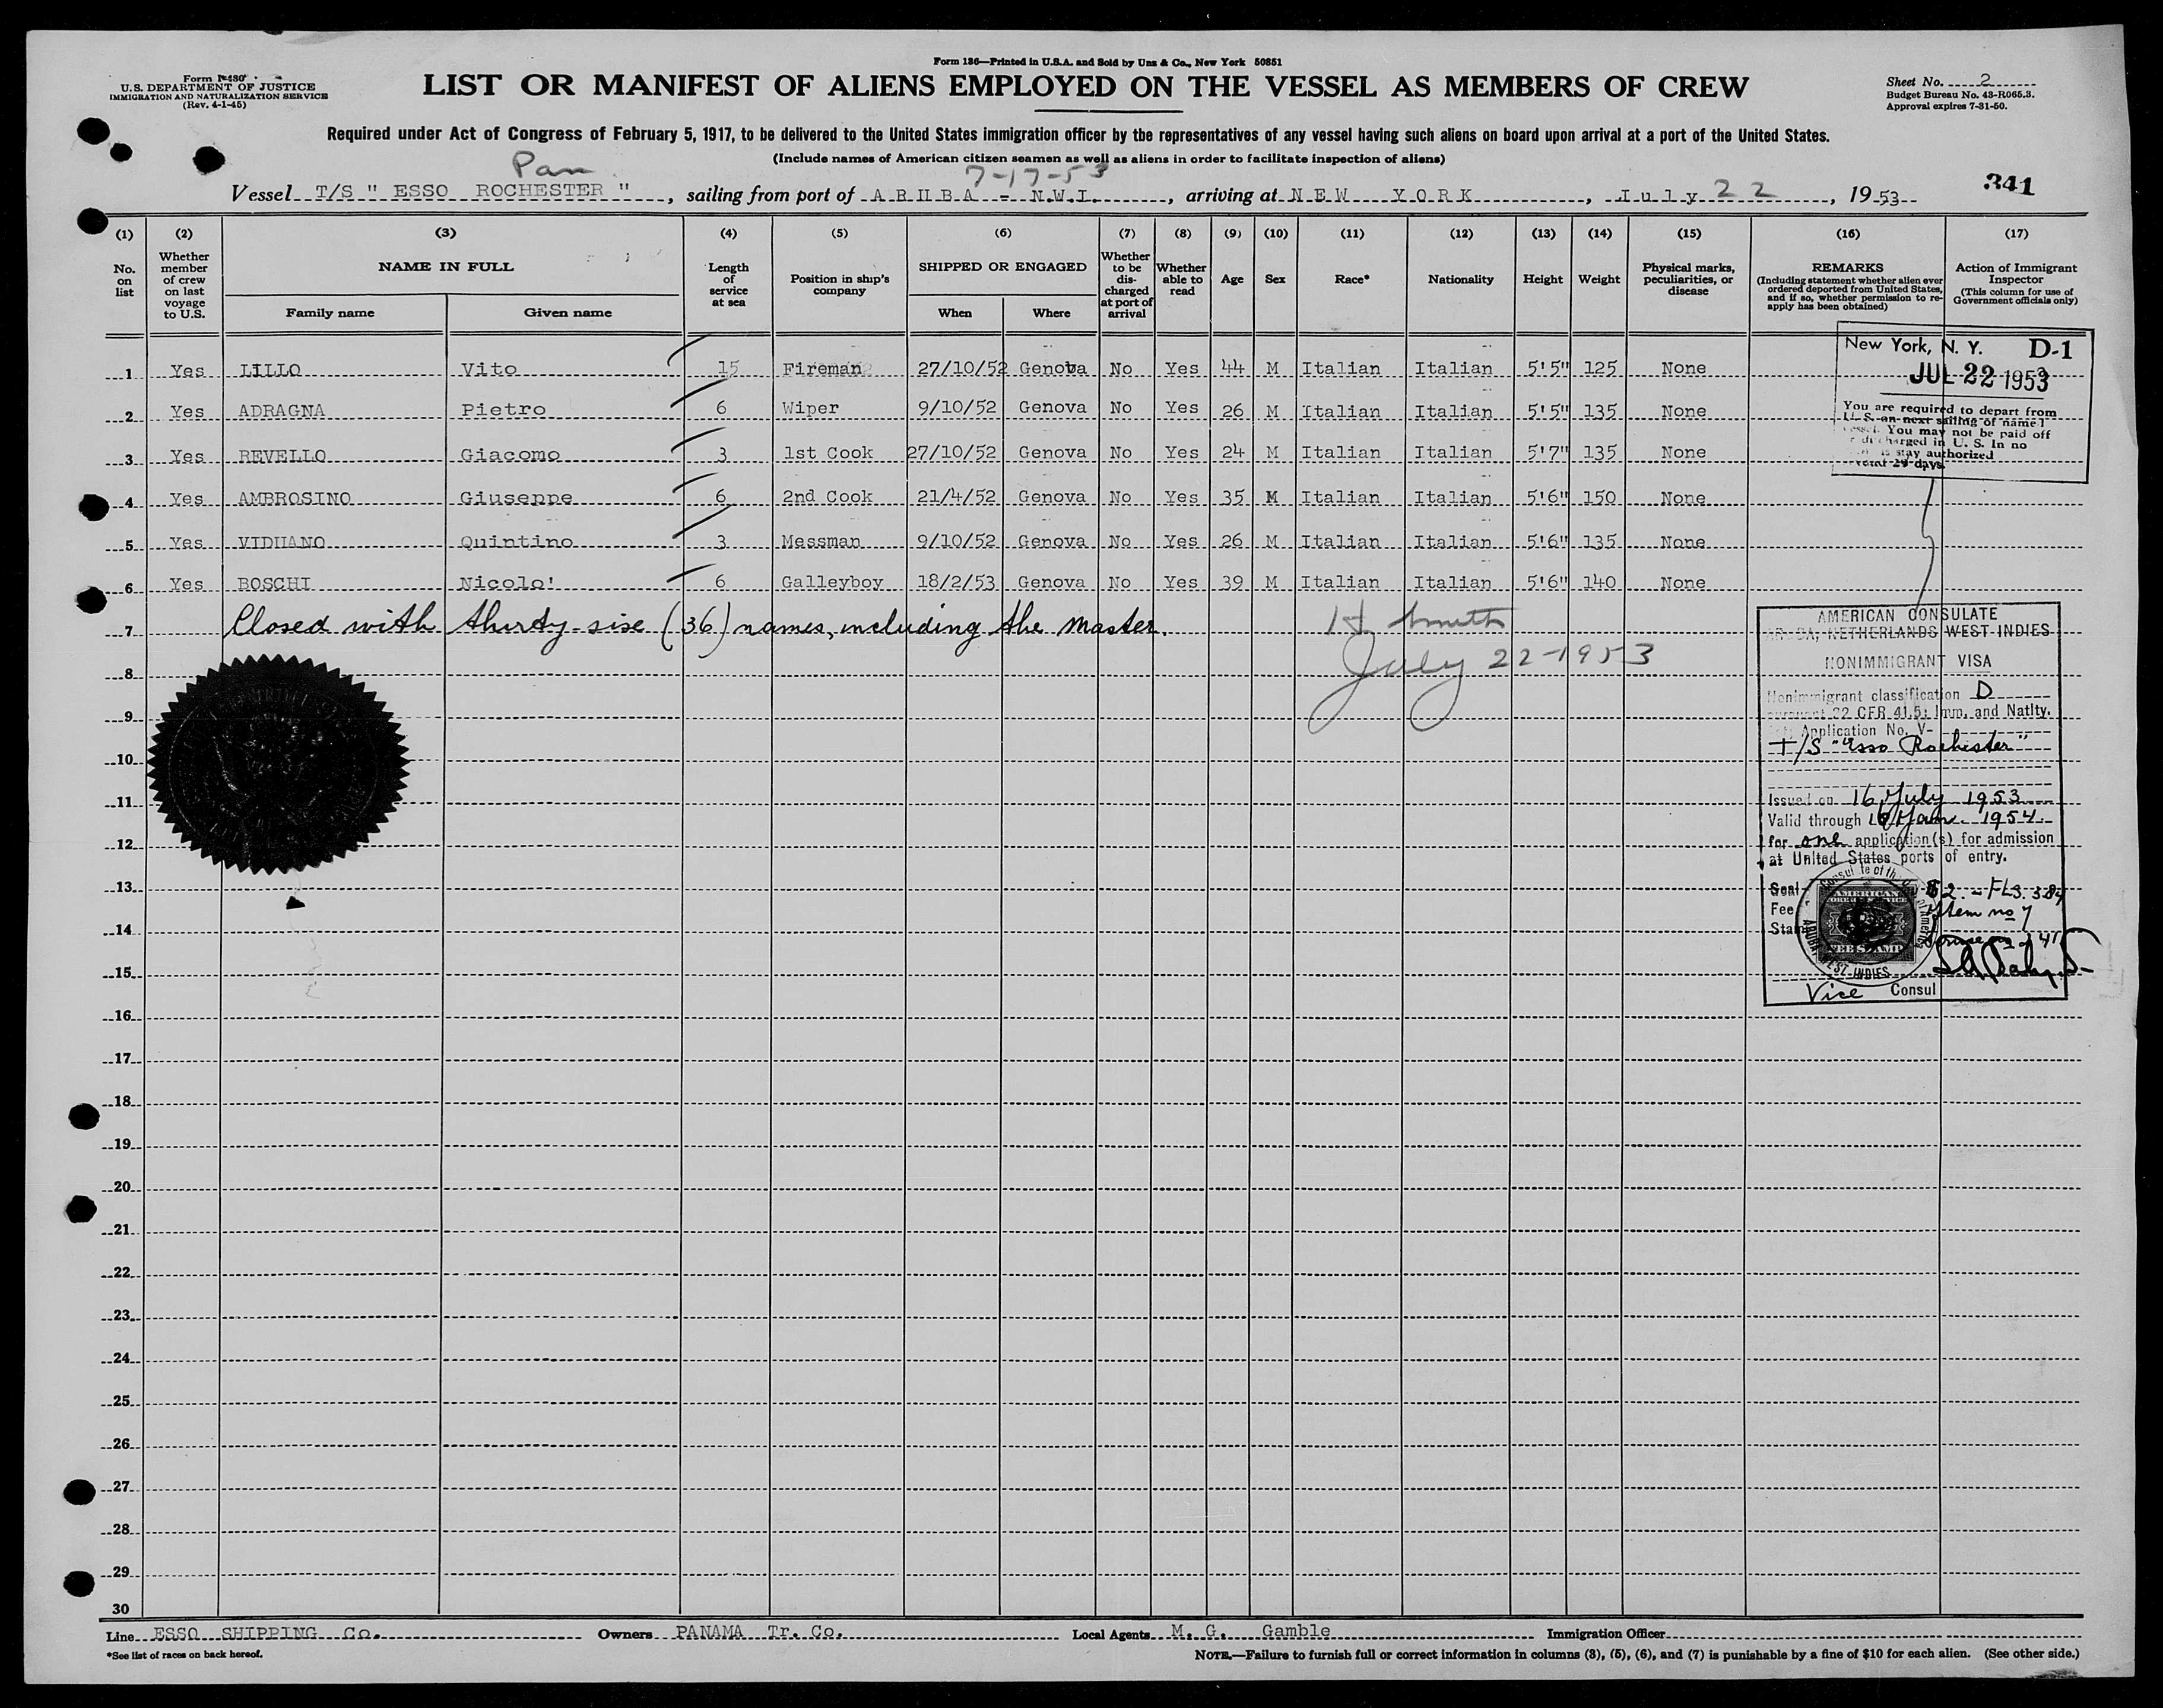 Form 186—Printed in U.S.A. and Sold by Unz & Co., New York 50851
Form I-480
U.S. DEPARTMENT OF JUSTICE
IMMIGRATION AND NATURALIZATION SERVICE
(Rev. 4-1-45)
LIST OR MANIFEST OF ALIENS EMPLOYED ON THE VESSEL AS MEMBERS OF CREW
Sheet No. 2
Budget Bureau No. 43-R065.3.
Approval expires 7-31-50.
Required under Act of Congress of February 5, 1917, to be delivered to the United States immigration officer by the representatives of any vessel having such aliens on board upon arrival at a port of the United States.
(Include names of American citizen seamen as well as aliens in order to facilitate inspection of aliens)
Pan
7-17-53
Vessel T/S " ESSO ROCHESTER ", sailing from port of ARUBA - N.W.I., arriving at NEW YORK, July 22, 1953
341
(1) (2) (3) (4) (5) (6) (7) (8) (9) (10) (11) (12) (13) (14) (15) (16) (17)
No. on list
Whether member of crew on last voyage to U.S.
NAME IN FULL
Family name
Given name
Length of service at sea
Position in ship's company
SHIPPED OR ENGAGED
When
Where
Whether to be discharged at port of arrival
Whether able to read
Age
Sex
Race*
Nationality
Height
Weight
Physical marks, peculiarities, or disease
REMARKS
(Including statement whether alien ever ordered deported from United States, and if so, whether permission to reapply has been obtained)
Action of Immigrant Inspector
(This column for use of Government officials only)
1 Yes LILLO Vito 15 Fireman 27/10/52 Genova No Yes 44 M Italian Italian 5'5" 125 None
2 Yes ADRAGNA Pietro 6 Wiper 9/10/52 Genova No Yes 26 M Italian Italian 5'5" 135 None
3 Yes REVELLO Giacomo 3 1st Cook 27/10/52 Genova No Yes 24 M Italian Italian 5'7" 135 None
4 Yes AMBROSINO Giuseppe 6 2nd Cook 21/4/52 Genova No Yes 35 M Italian Italian 5'6" 150 None
5 Yes VIDUANO Quintino 3 Messman 9/10/52 Genova No Yes 26 M Italian Italian 5'6" 135 None
6 Yes BOSCHI Nicolo' 6 Galleyboy 18/2/53 Genova No Yes 39 M Italian Italian 5'6" 140 None
New York, N. Y. D-1
JUL 22 1953
You are required to depart from
U. S. on next sailing of named
vessel. You may not be paid off
or discharged in U. S. In no
is stay authorized
29 days.
7 Closed with thirty-six (36) names, including the Master.
Smith
July 22-1953
AMERICAN CONSULATE
ARUBA, NETHERLANDS WEST INDIES
NONIMMIGRANT VISA
Nonimmigrant classification D
pursuant 22 CFR 41.5; Imm. and Natlty.
Application No. V-
T/S "Esso Rochester"
Issued on 16 July 1953
Valid through 16 Jan. 1954
for one application(s) for admission
at United States ports of entry.
Seal
Fee
Stamp
$2. - FLS. 3.84
Item no 7
AMERICAN
FEE STAMP
WEST INDIES
Vice Consul
8
9
10
11
12
13
14
15
16
17
18
19
20
21
22
23
24
25
26
27
28
29
30
Line ESSO SHIPPING Co. Owners PANAMA Tr. Co. Local Agents M. G. Gamble Immigration Officer
*See list of races on back hereof.
NOTE.—Failure to furnish full or correct information in columns (3), (5), (6), and (7) is punishable by a fine of $10 for each alien. (See other side.)